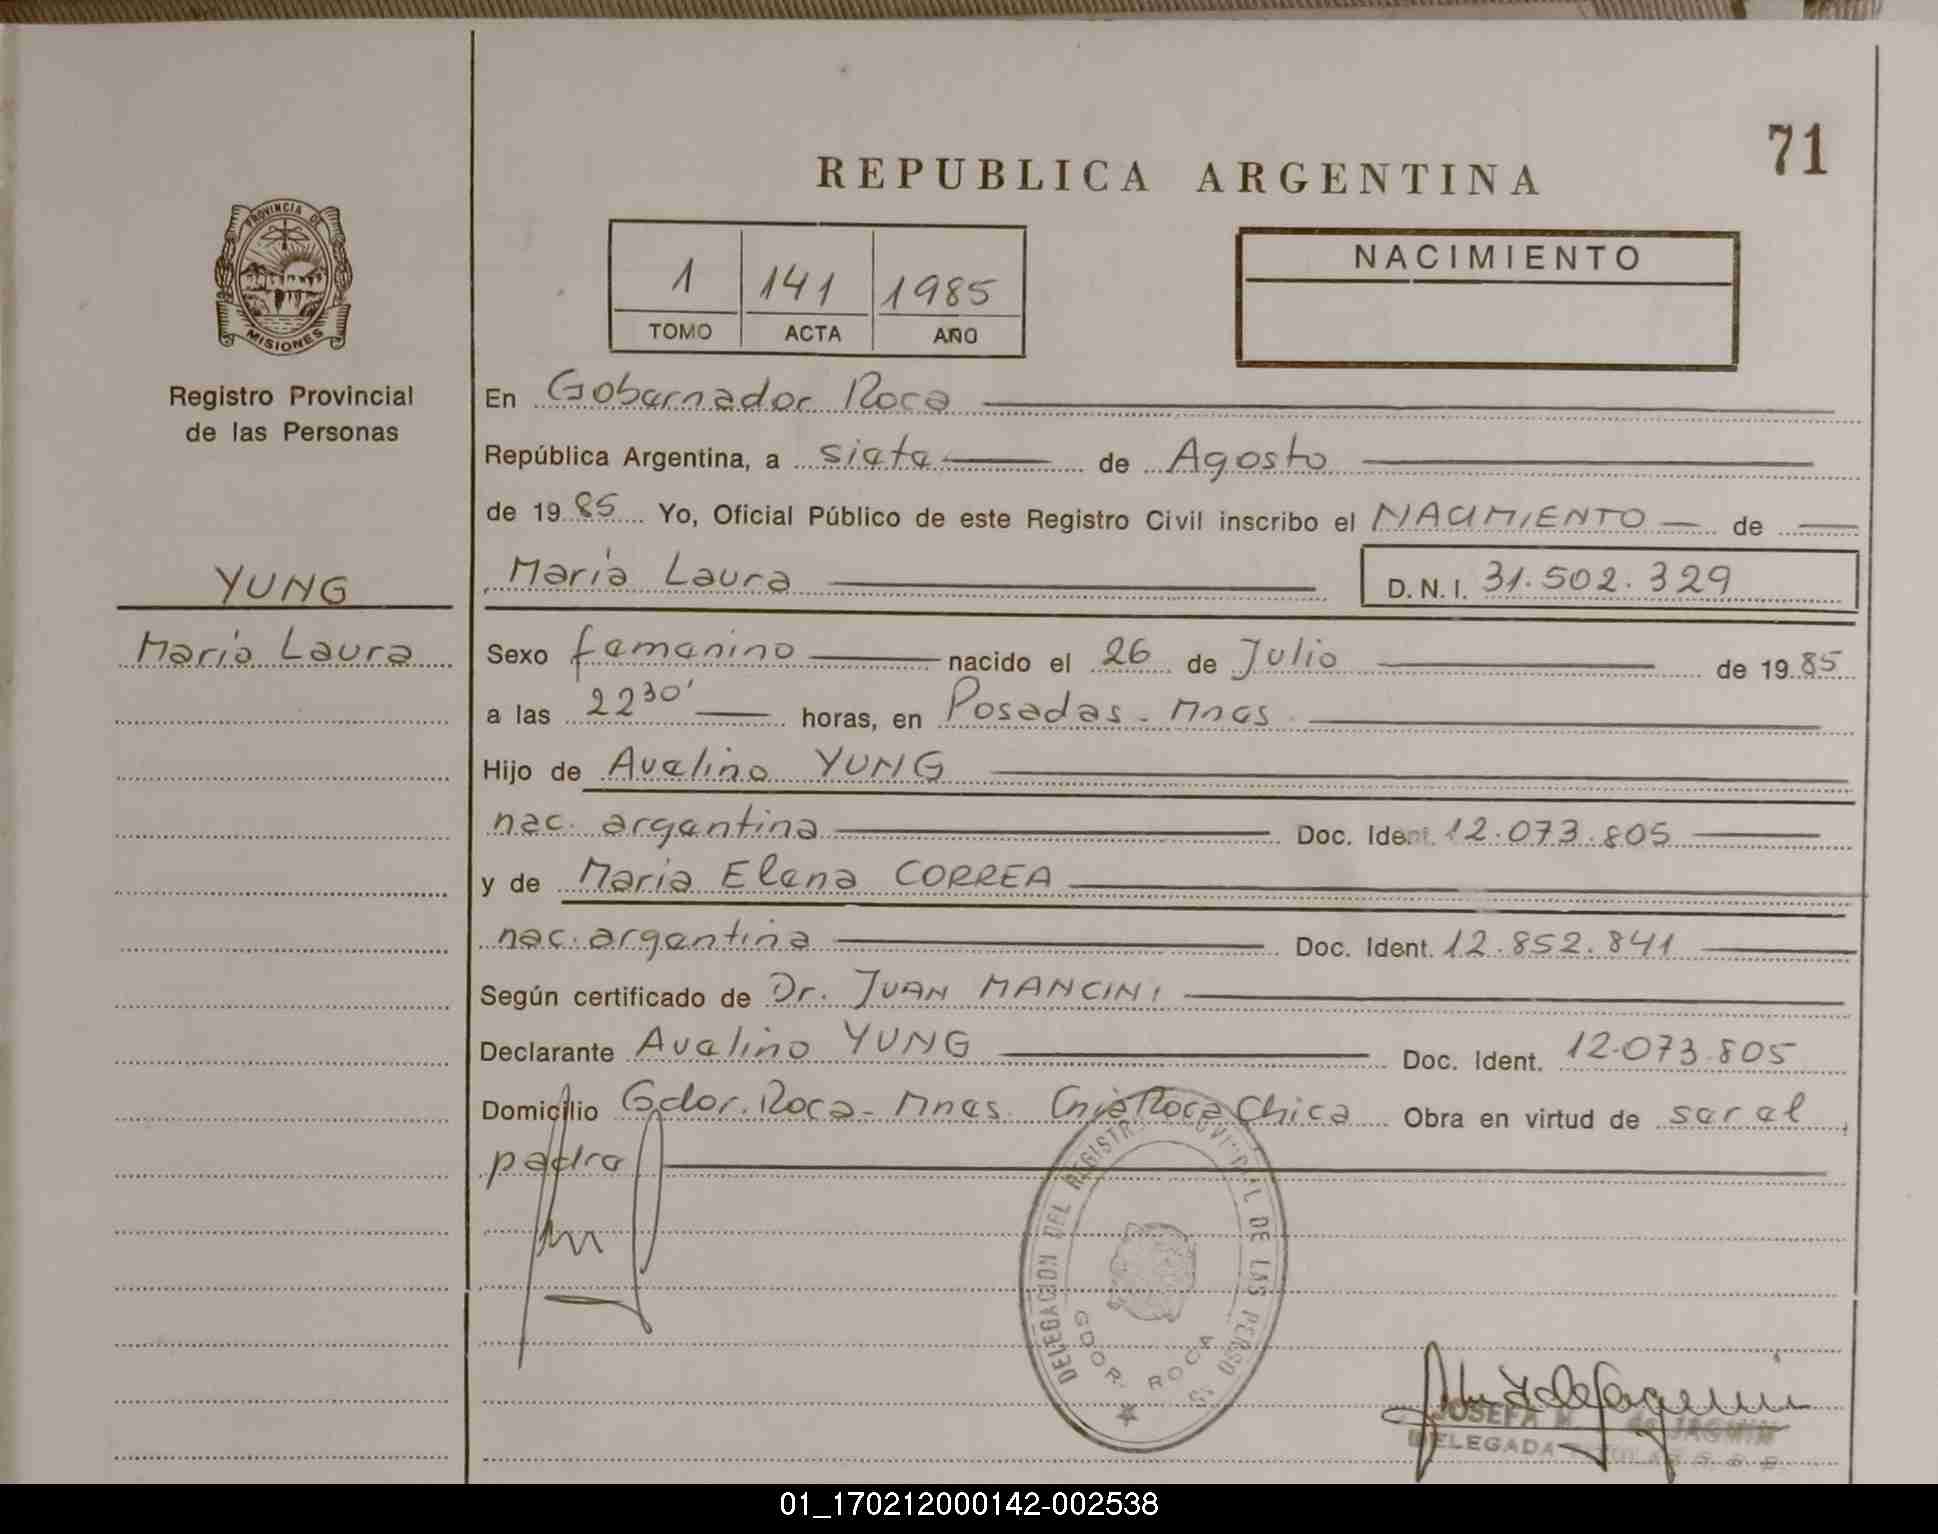 71
REPUBLICA ARGENTINA
PROVINCIA DE
MISIONES
Registro Provincial
de las Personas
1 141 1985
TOMO ACTA AÑO
NACIMIENTO
En Gobernador Roca
República Argentina, a siete de Agosto
de 1985 Yo, Oficial Público de este Registro Civil inscribo el NACIMIENTO de
YUNG
María Laura D.N.I. 31.502.329
María Laura
Sexo femenino nacido el 26 de Julio de 1985
a las 22 30' horas, en Posadas - Mnes
Hijo de Avelino YUNG
nac. argentina Doc. Ident. 12.073.805
y de María Elena CORREA
nac. argentina Doc. Ident. 12.852.841
Según certificado de Dr. JUAN MANCINI
Declarante Avelino YUNG Doc. Ident. 12.073.805
Domicilio Gdor. Roca - Mnes. Cnia Roca Chica Obra en virtud de ser el
padre
DELEGACION DEL REGISTRO PROVINCIAL DE LAS PERSONAS
GDOR. ROCA
JOSEFA de JAGMIN
DELEGADA
01_170212000142-002538